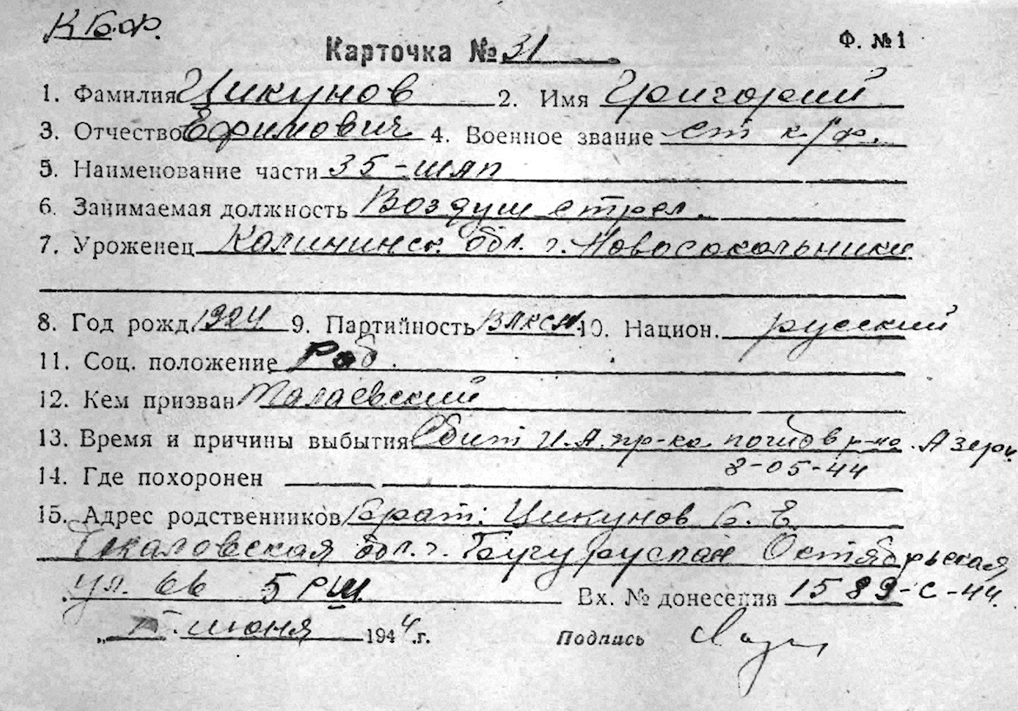 К.Б.Ф.
Карточка № 31 Ф. № 1
1. Фамилия Цикунов 2. Имя Григорий
3. Отчество Ефимович 4. Военное звание ст к/ф.
5. Наименование части 35-шап
6. Занимаемая должность Воздуш стрел.
7. Уроженец Калининск. обл. г. Новосокольники
8. Год рожд 1924 9. Партийность ВЛКСМ 10. Национ. русский
11. Соц. положение Раб.
12. Кем призван Талаевский
13. Время и причины выбытия Сбит И.А. пр-ка погиб в р-не Азери
8-05-44
14. Где похоронен
15. Адрес родственников Брат: Цикунов Б. Е.
Чкаловская обл. г. Бугуруслан Октябрьская
ул. 66 5 РШ Вх. № донесения 1589-с-44.
" июня 1944 г. Подпись